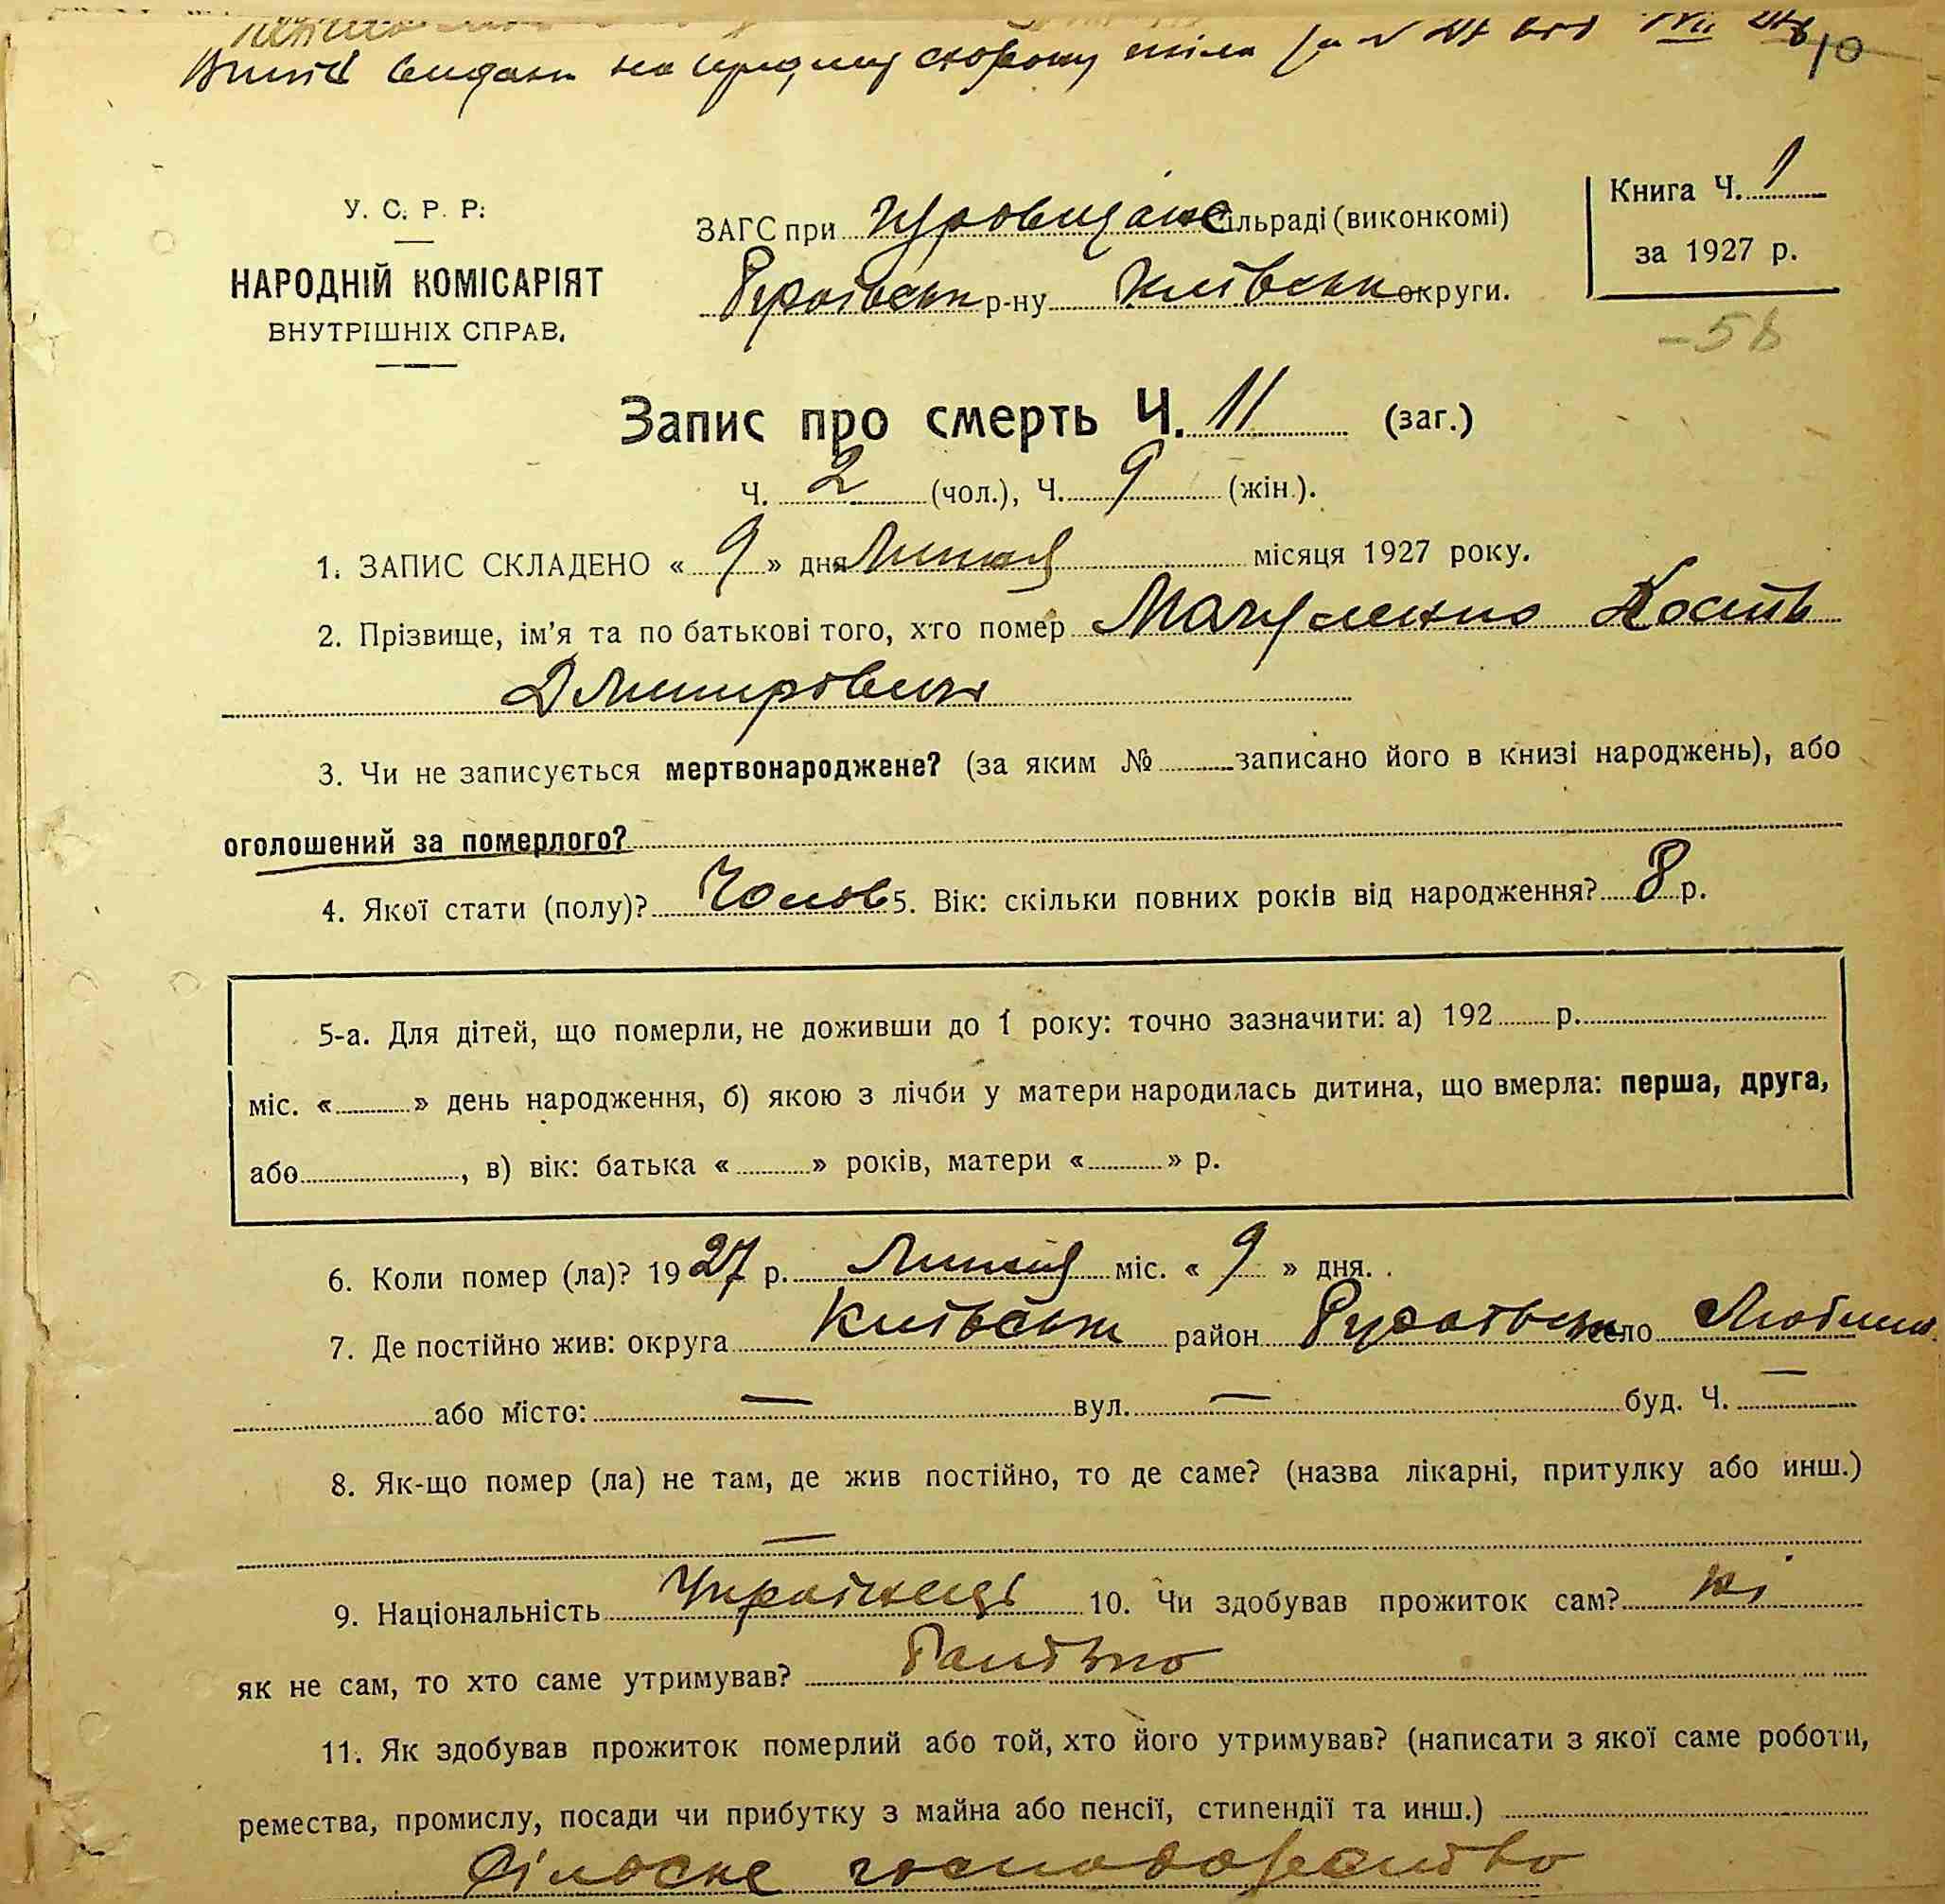 Витяг видани на сторону
10
У. С. Р. Р.
НАРОДНІЙ КОМІСАРІЯТ
ВНУТРІШНІХ СПРАВ.
ЗАГС при сільраді (виконкомі)
р-ну Київськи округи.
Книга Ч. 1
за 1927 р.
Запис про смерть Ч. 11 (заг.)
Ч. 2 (чол.), Ч. 9 (жін.).
1. ЗАПИС СКЛАДЕНО « 9 » дня Липня місяця 1927 року.
2. Прізвище, ім'я та по батькові того, хто помер Мачуленко Кость
Дмитрович
3. Чи не записується мертвонароджене? (за яким № записано його в книзі народжень), або
оголошений за померлого?
4. Якої стати (полу)? Чолов 5. Вік: скільки повних років від народження? 8 р.
5-а. Для дітей, що померли, не доживши до 1 року: точно зазначити: а) 192 р.
міс. « » день народження, б) якою з лічби у матери народилась дитина, що вмерла: перша, друга,
або , в) вік: батька « » років, матери « » р.
6. Коли помер (ла)? 1927 р. Липня міс. « 9 » дня.
7. Де постійно жив: округа Київськи район село
або місто: — вул. — буд. Ч. —
8. Як-що помер (ла) не там, де жив постійно, то де саме? (назва лікарні, притулку або инш.)
—
9. Національність Українець 10. Чи здобував прожиток сам? ні
як не сам, то хто саме утримував? Батько
11. Як здобував прожиток померлий або той, хто його утримував? (написати з якої саме роботи,
ремества, промислу, посади чи прибутку з майна або пенсії, стипендії та инш.)
Сільське господарство